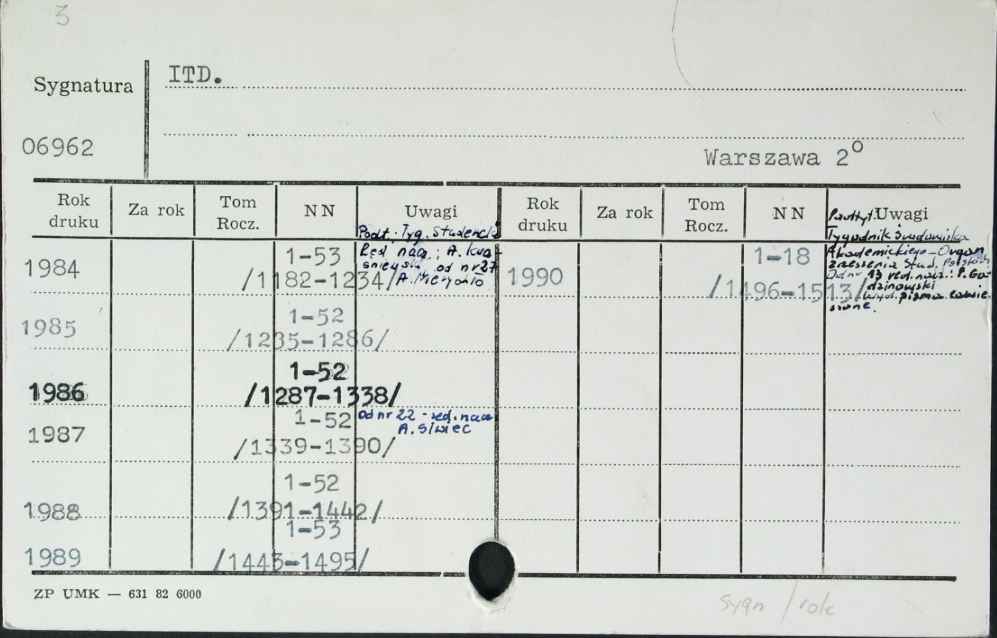 3
Sygnatura
ITD.
06962
Warszawa 2°
Rok druku
Za rok
Tom Rocz.
NN
Uwagi
Rok druku
Za rok
Tom Rocz.
NN
Uwagi
1984
1-53
/1182-1234/
Podt. Tyg. Studencki
Red. nacz.: A. Kwa-
śniewski od nr 27
1985
1-52
/1235-1286/
1986
1-52
/1287-1338/
1987
1-52
/1339-1390/
Od nr 22 - red. nacz.
A. Siwiec
1988
1-52
/1391-1442/
1989
1-53
/1443-1495/
1990
1-18
/1496-1513/
Tygodnik Środowiska
Akademickiego - Organ
Zrzeszenia Stud. Polskich
Od nr 13 red. nacz.: P. Ga-
dzinowski
Wyd. pisma zawie-
szone.
ZP UMK — 631 82 6000
Sygn / rok